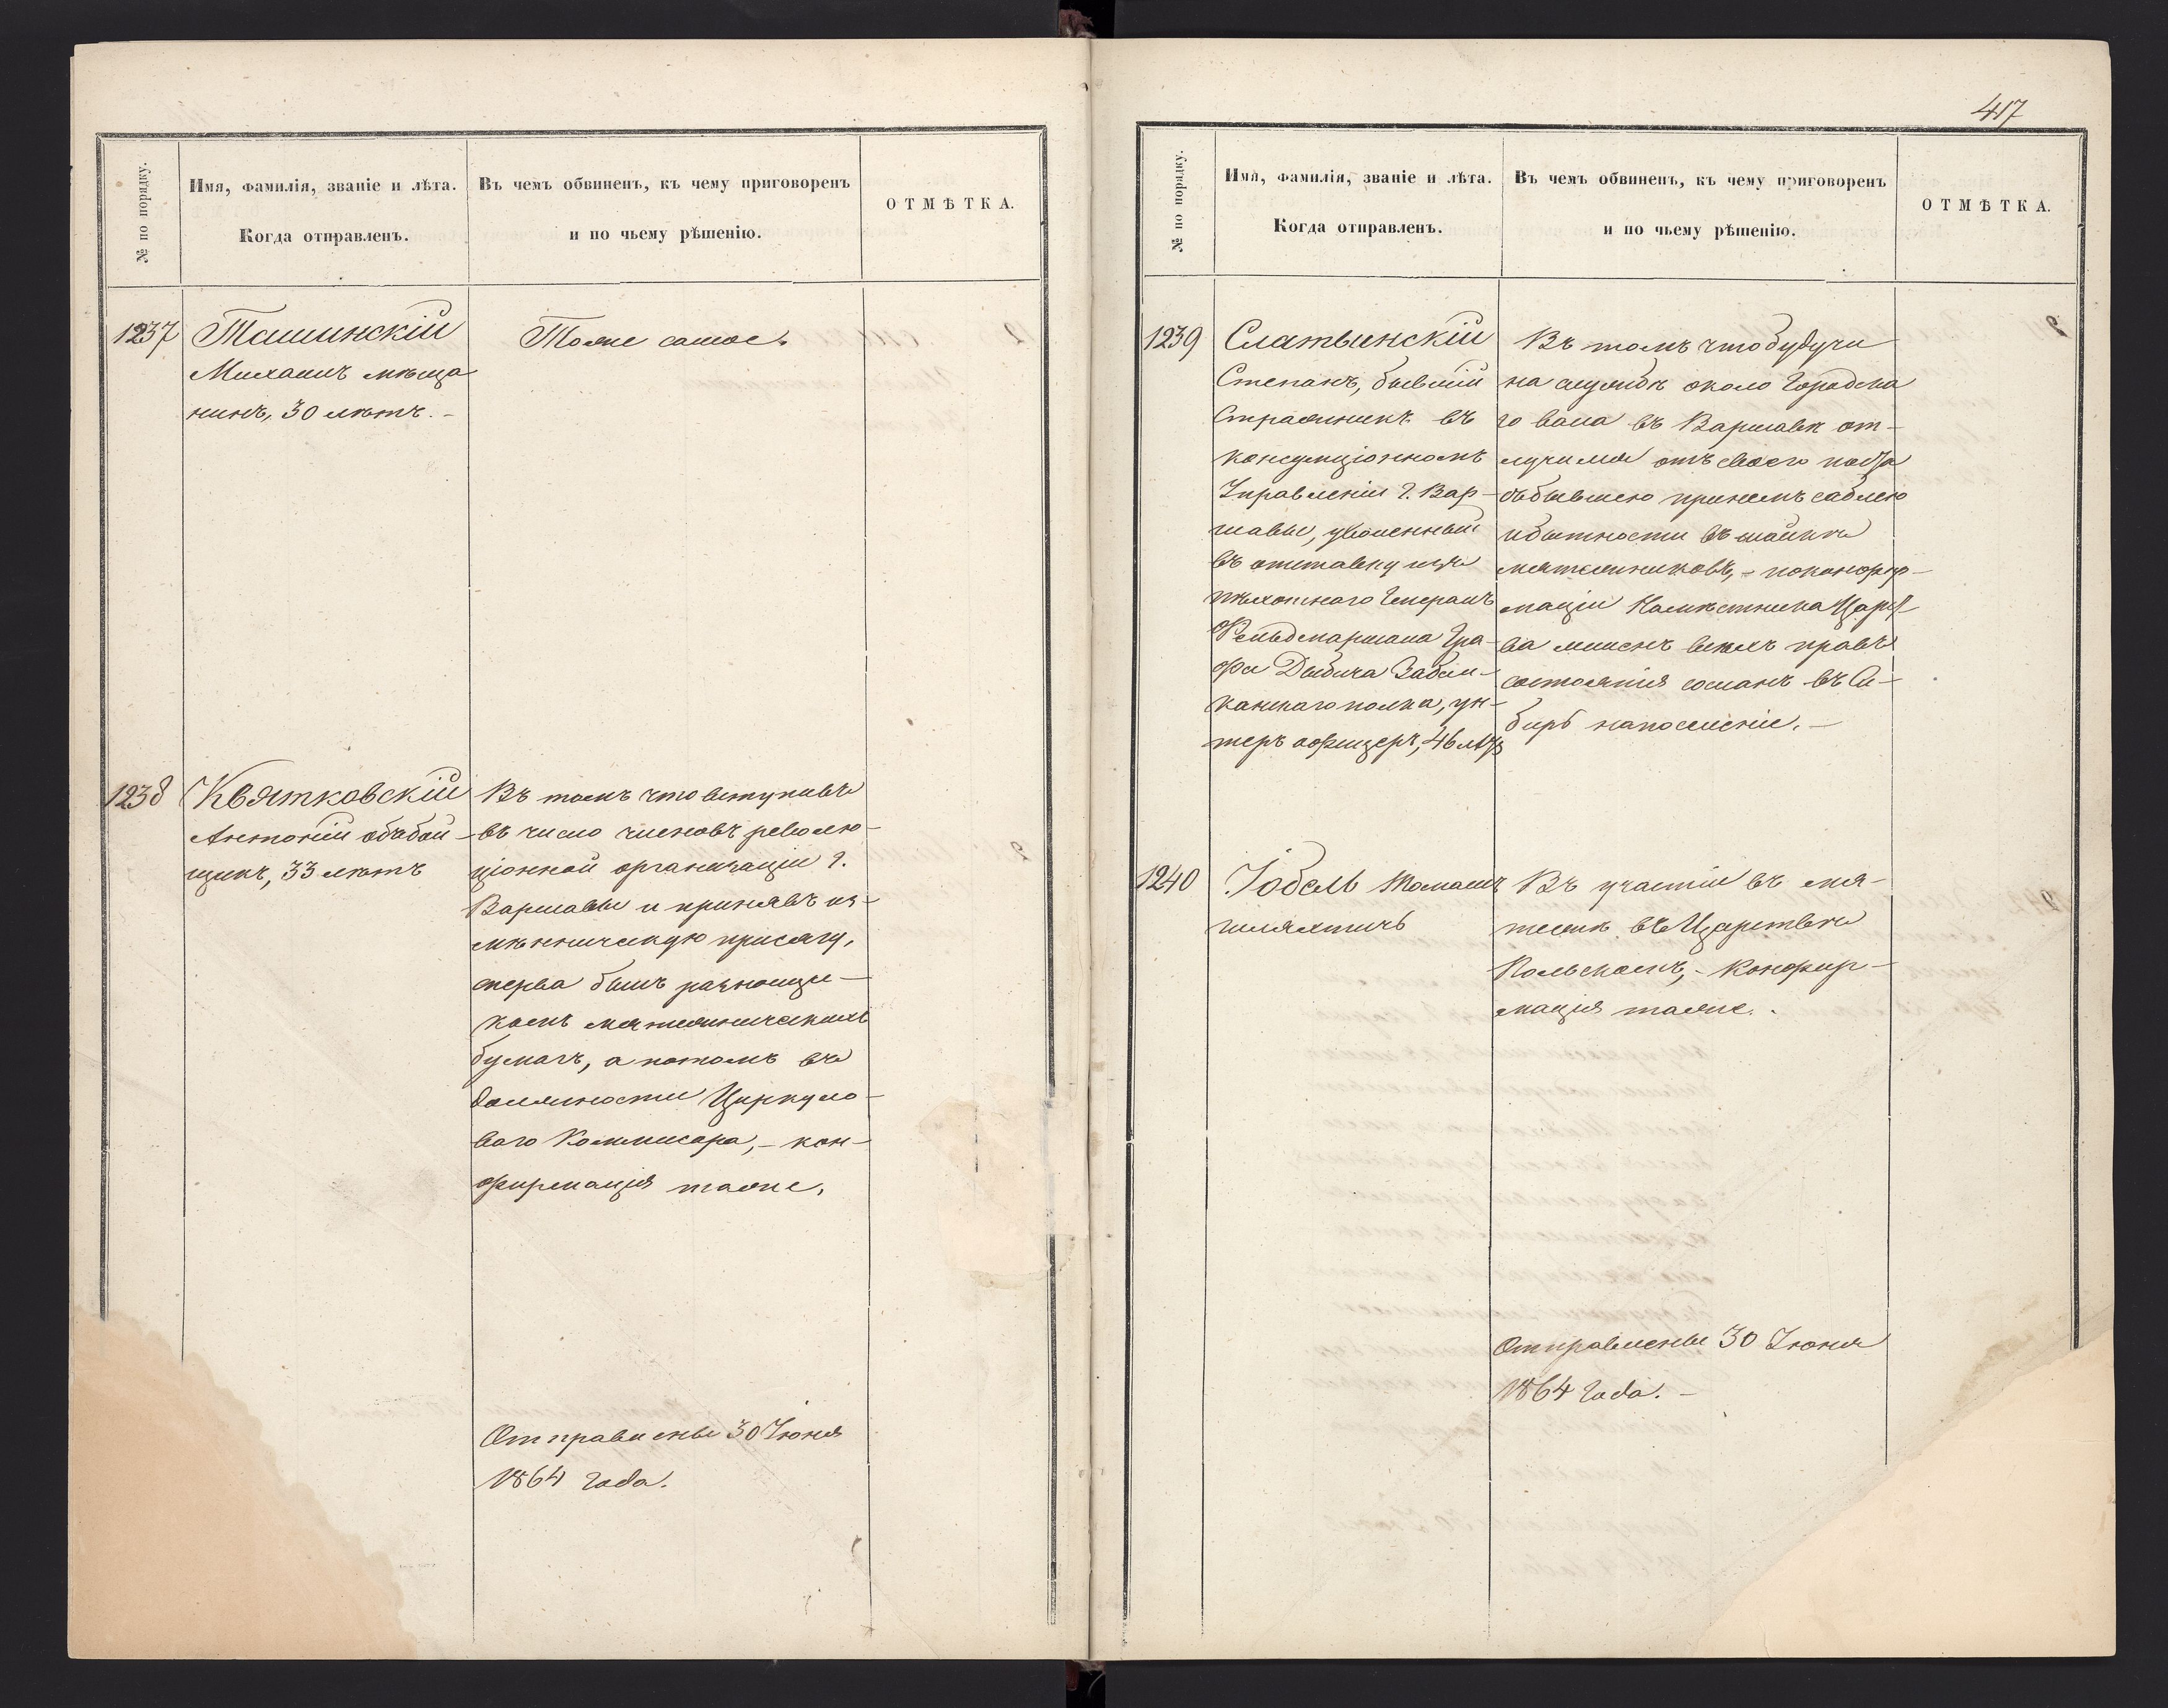 № по порядку.
Имя, фамилія, званіе и лѣта.
Когда отправленъ.
Въ чемъ обвиненъ, къ чему приговоренъ
и по чьему рѣшенію.
ОТМѢТКА.
1237
Ташинскій
Михаилъ мѣща
нинъ, 30 лѣтъ. -
Тоже самое.
1238
Квятковскій
Антоній обѣбой-
щикъ, 33 лѣтъ
Въ томъ что вступивъ
въ число членовъ револю-
ціонной организаціи г.
Варшавы и принявъ из-
мѣнническую присягу,
сперва былъ разнощи-
комъ мятежническихъ
бумагъ, а потомъ въ
должности Циркуло-
ваго Коммисара, - кон-
фирмація таже.
Отправлены 30 Іюня
1864 года.
417
№ по порядку.
Имя, фамилія, званіе и лѣта.
Когда отправленъ.
Въ чемъ обвиненъ, къ чему приговоренъ
и по чьему рѣшенію.
ОТМѢТКА.
1239
Слатвинскій
Степанъ, бывшій
Стражникъ въ
консумціонномъ
Управленіи г. Вар-
шавы, уволенный
въ отставку изъ
пѣхотнаго Генералъ
Фельдмаршала Гра-
фа Дибича Забал-
канскаго полка, ун-
теръ офицеръ, 46 лѣтъ
Въ томъ что будучи
на службѣ около Городска
го вала въ Варшавѣ от-
лучился отъ своего поста
съ бывшею при немъ саблею
и бытности въ шайкѣ
мятежниковъ, - по конфир-
маціи Намѣстника Царст
ва лишенъ всѣхъ правъ
состоянія сосланъ въ Си-
бирь на поселеніе. -
1240
Іобель Томашъ
шляхтичь
Въ участіи въ мя-
тежѣ въ Царствѣ
Польскомъ, - конфир-
мація таже.
Отправлены 30 Іюня
1864 года. -